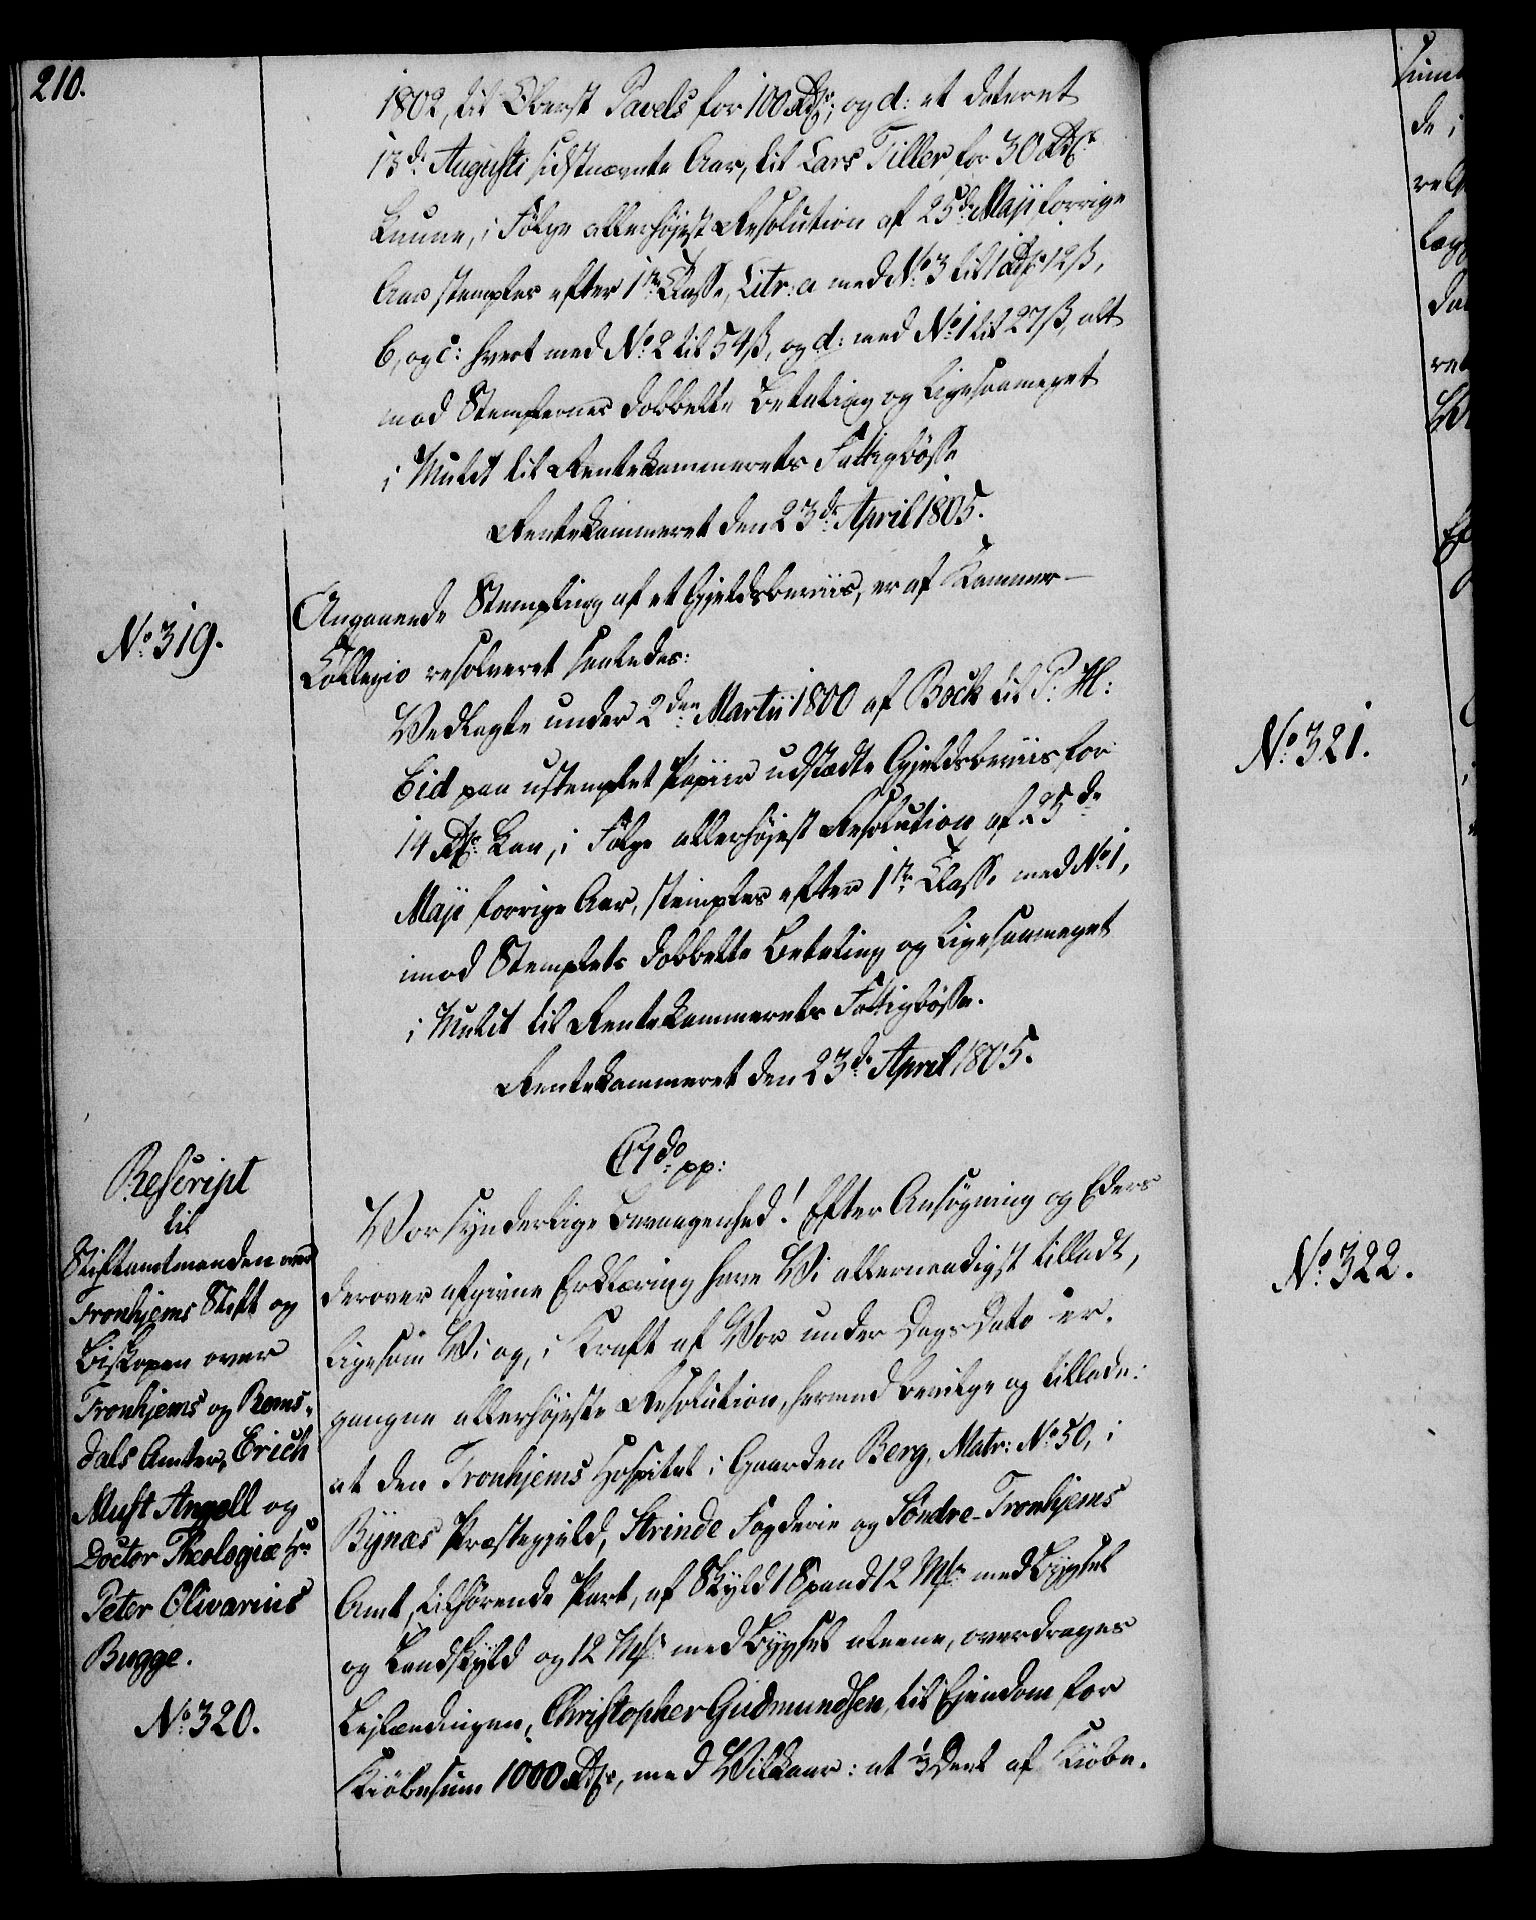 210.
1802, til Oberst Pavels for 100 Rd; og d: et dateret
13de Augusti sidstnævnte Aar, til Lars Tiller for 30 Rd
kunne, i Følge allerhøjest Resolution af 25de Maji forrige
Aar stemples efter 1ste Classe, Litr: a med No 3 til 1 Rd 12 ß,
b, og c: hvert med No 2 til 54 ß, og d: med No 1 til 27 ß, alt
mod Stemplernes dobbelte Betaling og ligesaameget
i Mulct til Rentekammerets Fattigbøsse
Rentekammeret den 23de April 1805.
No 319.
Angaaende Stempling af et Gjeldsbeviis, er af Kammer-
Collegio resolveret saaledes:
Vedlagte under 2den Martii 1800 af Bock til P: H:
Eid paa ustemplet Papiir udstædte Gjeldsbeviis for
14 Rd kan, i Følge allerhøjest Resolution af 25de
Maji forrige Aar, stemples efter 1ste Classe med No 1,
imod Stemplets dobbelte Betaling og ligesaameget
i Mulct til Rentekammerets Fattigbøsse.
Rentekammeret den 23de April 1805.
Rescript
til
Stiftamtmanden over
Tronhjems Stift og
Biskopen over
Tronhjems og Roms-
dals Amter, Erich
Must Angell og
Doctor Theologiæ Hr
Peter Olivarius
Bugge.
No 320.
C 7do pp:
Vor synderlige Bevaagenhed! Efter Ansøgning og Eders
derover afgivne Erklæring have Vi allernaadigst tilladt,
ligesom Vi og, i Kraft af Vor under Dags Dato er-
gangne allerhøjeste Resolution, hermed bevilge og tillade:
at den Tronhjems Hospital i Gaarden Berg, Matr: No 50, i
Bynæs Præstegjeld, Strinde Fogderie og Søndre-Tronhjems
Amt, tilhørende Part, af Skyld 1 Spand 12 Mk med Bygsel
og Landskyld og 12 Mk med Bygsel aleene, overdrages
Lejlændingen, Christopher Gudmundsen, til Ejendom for
Kiøbesum 1000 Rd, med Vilkaar: at 1/3 Deel af Kiøbe-
No 321.
No 322.